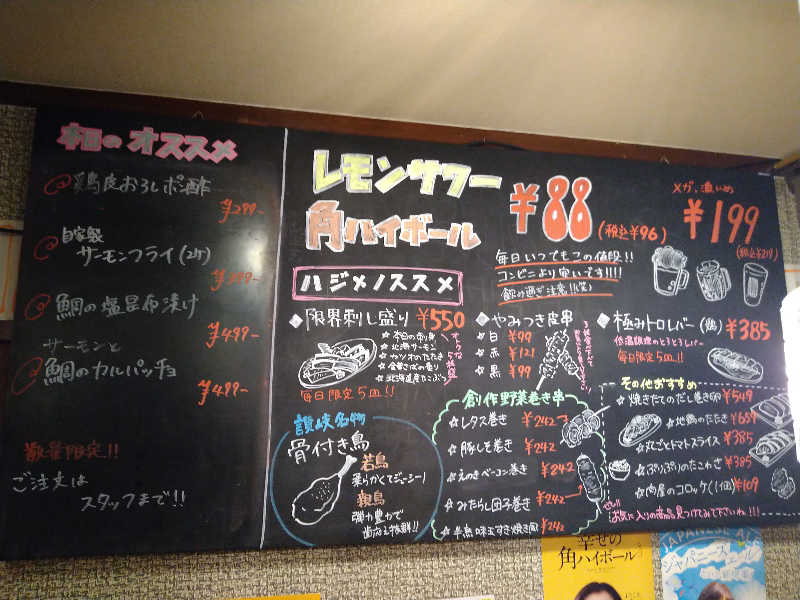 本日のオススメ
鶏皮おろしポン酢
¥299-
自家製
サーモンフライ(2ケ)
¥399-
鯛の塩昆布漬け
¥499-
サーモンと
鯛のカルパッチョ
¥499-
数量限定!!
ご注文は
スタッフまで!!
レモンサワー
角ハイボール
¥88
(税込¥96)
メガ、濃いめ
¥199
(税込¥219)
毎日いつでもこの値段!!
コンビニより安いです!!!!
飲み過ぎ注意!!(笑)
ハジメノススメ
◆限界刺し盛り ¥550
☆本日の刺身
☆北海サーモン
☆カツオのたたき
☆北海道産たこぶつ
毎日限定5皿!!
◆やみつき皮串
☆白 ¥99
☆赤 ¥121
☆黒 ¥99
◆極みトロレバー(鶏) ¥385
低温調理のとろとろレバー
毎日限定5皿!!
讃岐名物
骨付き鳥
若鳥
柔らかくてジューシー!
親鳥
弾力豊かで
歯応え抜群!!
創作野菜巻き串
☆レタス巻き ¥242
☆豚しそ巻き ¥242
☆えのきベーコン巻き ¥242
☆みたらし団子巻き ¥242
☆半熟味玉すき焼き風 ¥242
その他おすすめ
☆焼きたてのだし巻き卵 ¥549
☆地鶏のたたき ¥659
☆丸ごとトマトスライス ¥385
☆ぷりぷりのたこわさ ¥385
☆肉屋のコロッケ(1個) ¥109
ぜひ!!
お気に入りの商品見つけてみて下さいね!!!
幸せの
角ハイボール
JAPANESE ALE
ジャパニーズエール